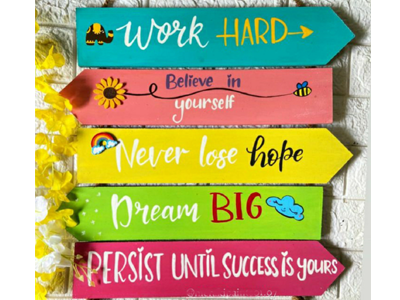 Work HARD
Believe in
yourself
Never lose hope
Dream BIG
PERSIST UNTIL SUCCESS iS YOURS